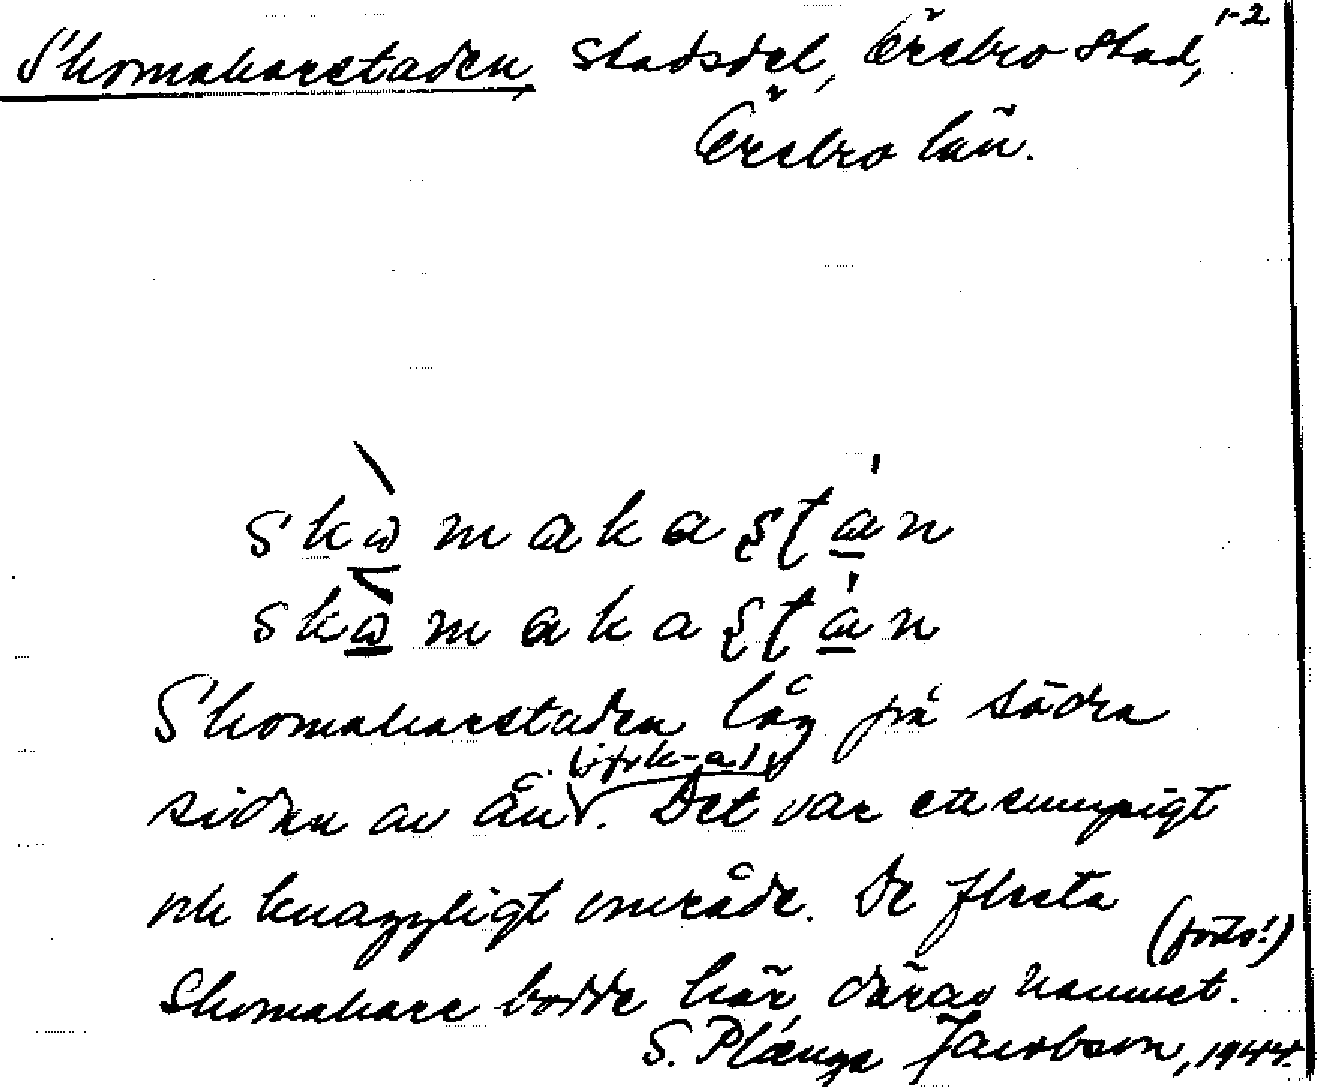 1-2
Skomakarstaden, stadsdel, Örebro stad,
Örebro län.
skɷ̀makaʂʈán
skɷ̀makaʂʈán
Skomakarstaden låg på södra
sidan av ån. Det var ett sumpigt
och knaggligt område. De flesta
(forts!)
skomakare bodde här, därav namnet.
S. Plænge Jacobson, 1944.